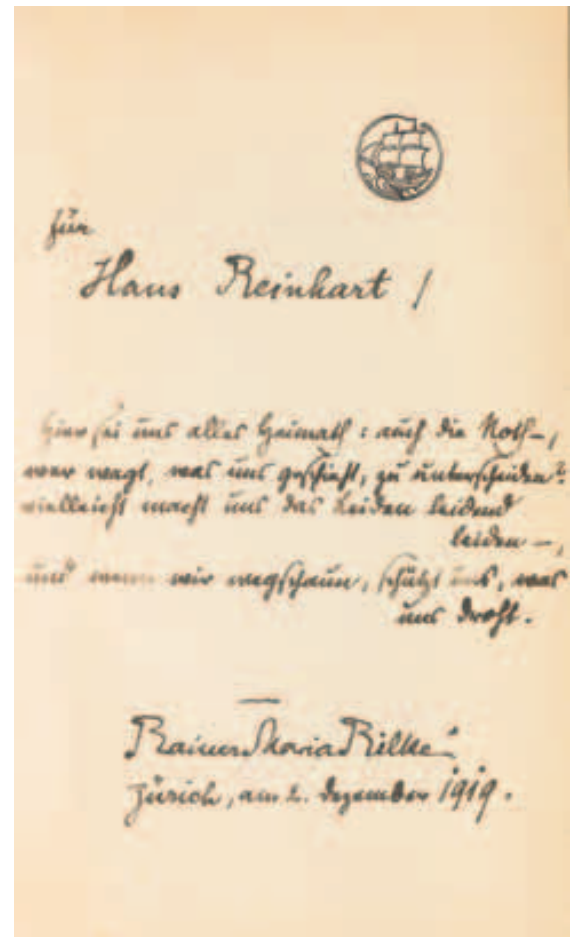 für
Hans Reinhart /
Hier sei uns alles Heimath: auch die Noth–,
wer wagt, was uns geschieht, zu unterscheiden?
vielleicht macht uns das Leiden leidend
leiden –,
und wenn wir wegschaun, schützt uns, was
uns droht.
Rainer Maria Rilke
Zürich, am 2. Dezember 1919.